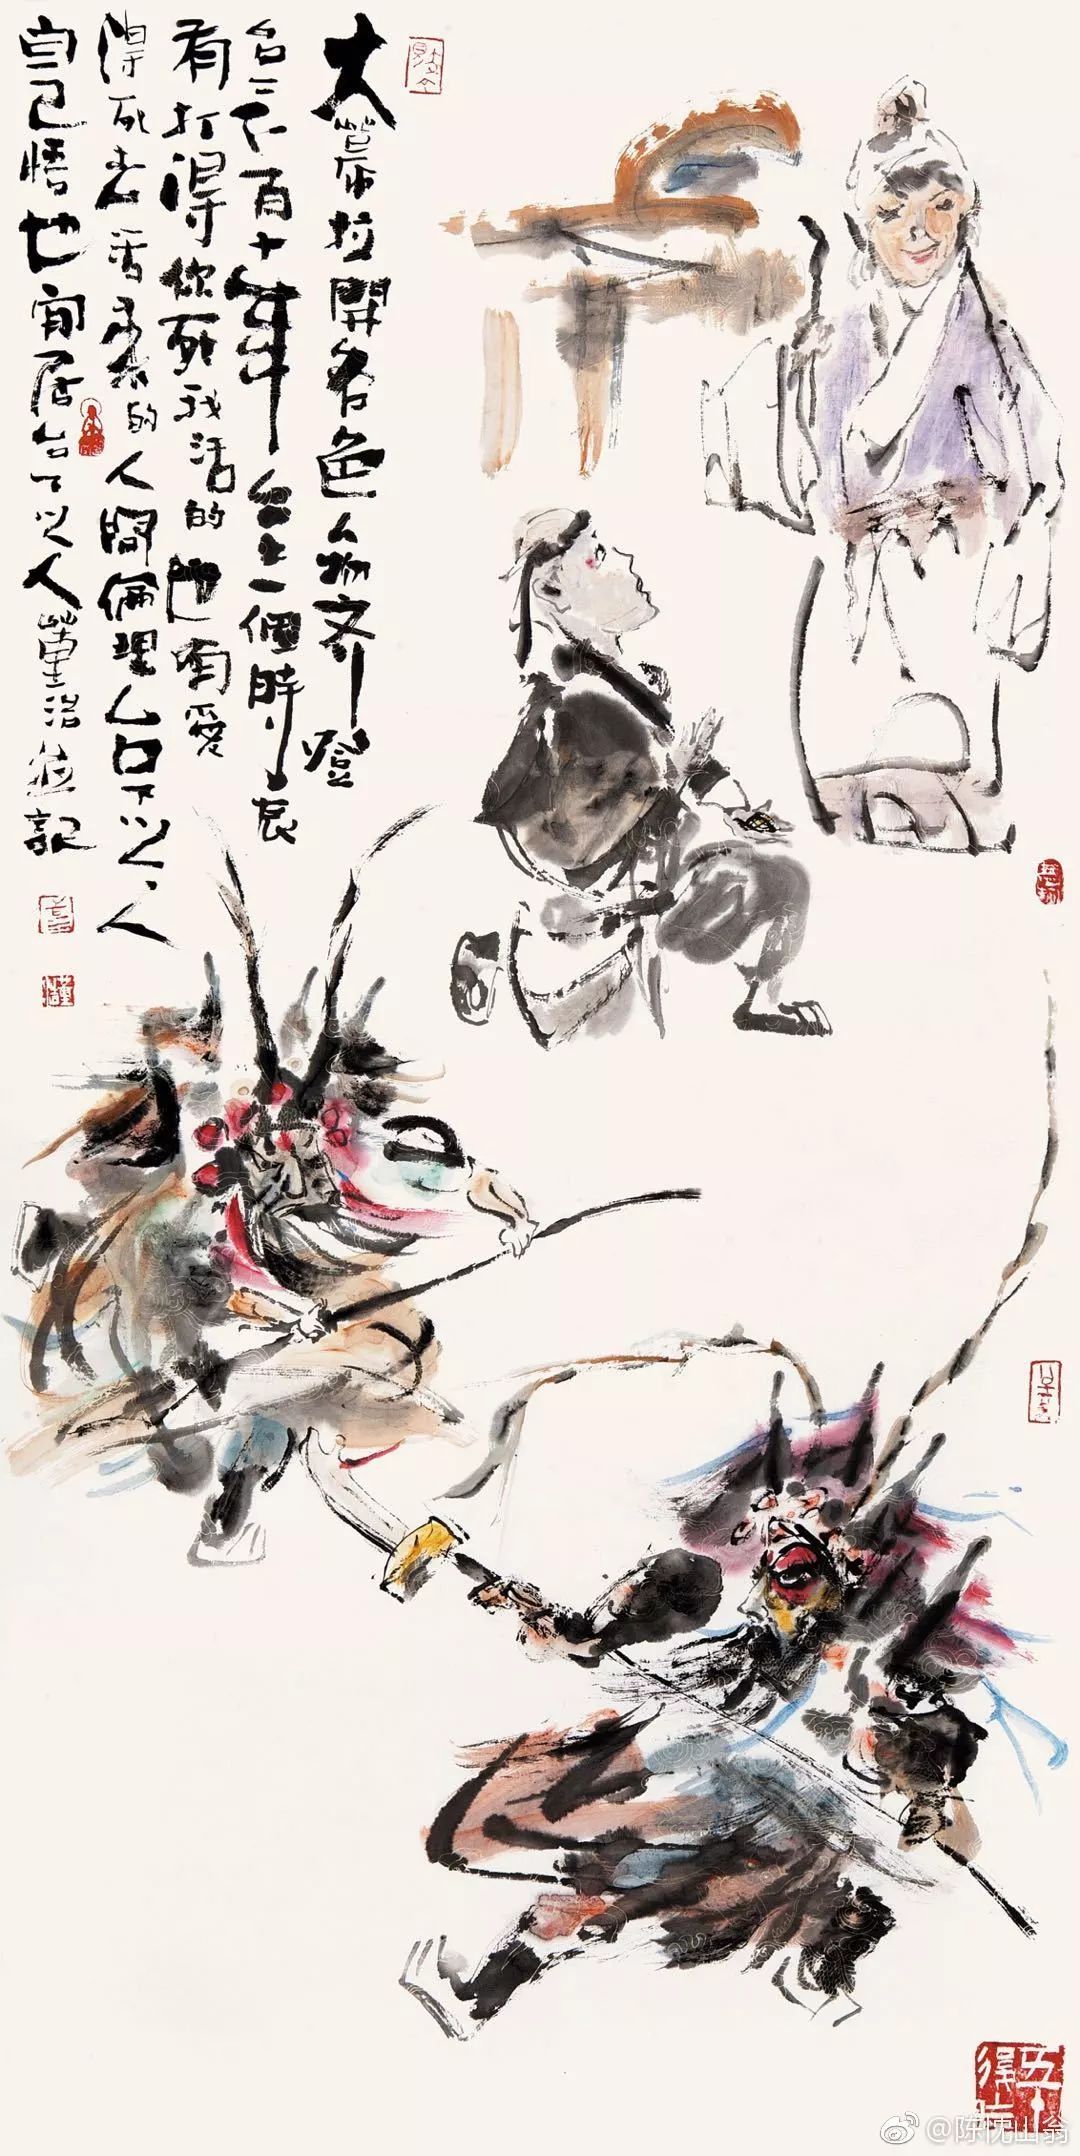 大幕拉開各色人物齐登
台三下百十年台上一個時辰
有打得你死我活的也有愛
得死去活来的人間倫理台下之人
自己悟也 闲居台下之人董浩并記
五十
@陈忱山翁